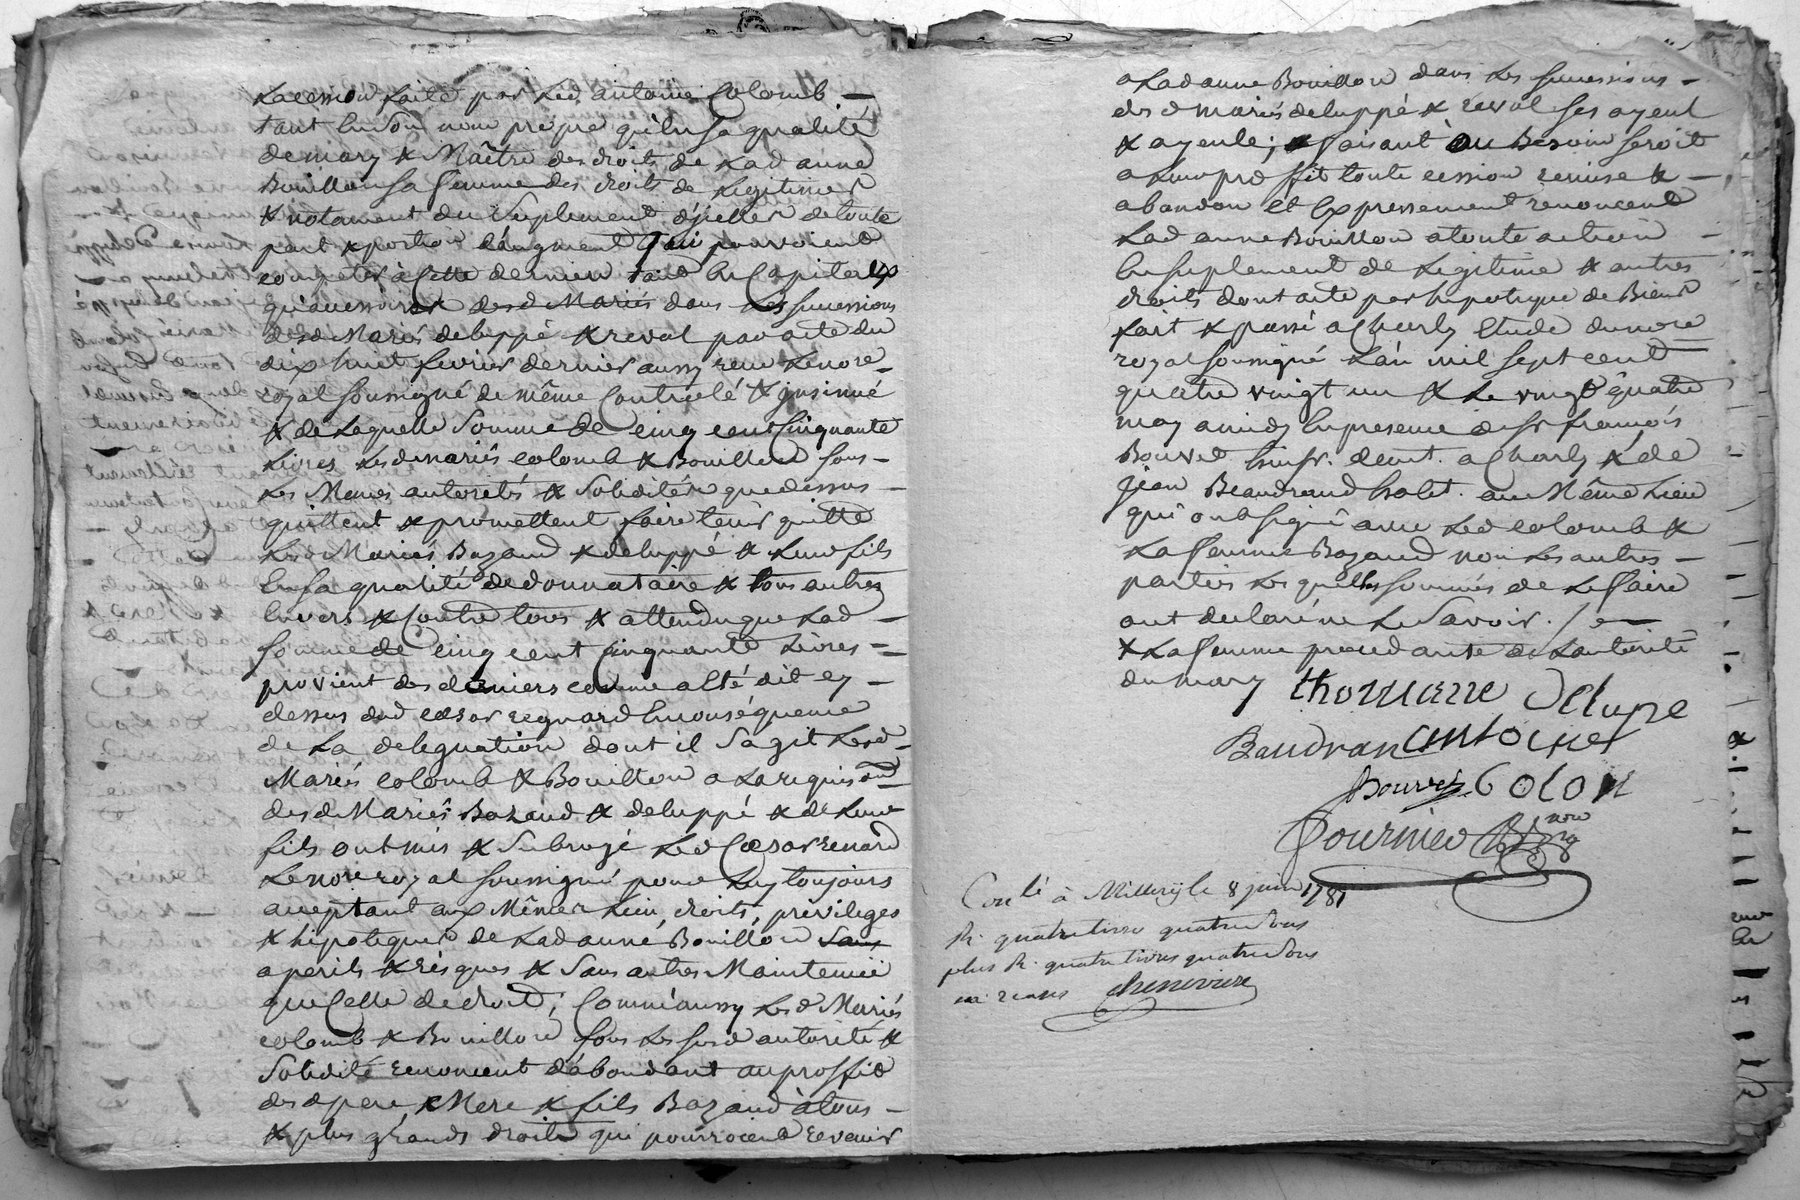 La cession faite par led. antoine Colomb
tant En son nom propre qu'En sa qualité
de mary & Maître des droits de Lad anne
Bouillon sa femme des droits de Legitimes
& notament du Suplement d'jcelles de toute
part & portion d'augment qui pouvoient
competer à Cette derniere tand En Capitaux
qu'accessoires desd Mariés dans Les successions
desd Mariés deluppé & reval par acte du
dix huit fevrier dernier aussy recu Le nore
royal soussigné de même Controlé & jnsinué
& de Laquelle Somme de Cinq cent Cinquante
Livres Lesd mariés colomb & Bouillon sous
Les Memes autorités & Solidité que dessus
quittent & promettent faire tenir quitte
Lesd Mariés Bazaud & deluppé & Leur fils
En sa qualité de donnataire & tous autres
Envers & Contre tous & attendu que Lad
somme de Cinq cent Cinquante Livres
provient des deniers comme a été dit cy
dessus dud cesar regnard En conséquence
de La deleguation dont il s'agit Lesd
Mariés colomb & Bouillon a La requison
desd Mariés Bazaud & deluppé & de Leur
fils ont mis & Subrogé Led Cesar renard
Le nore royal soussigné pour Luy toujours
acceptant aux Mêmes Lieu, droits, privileges
& hipoteques de Lad anne Bouillon sans
a perils & risques & Sans autres Maintenue
que Celle de droit; Comme aussy Lesd Mariés
colomb & Bouillon sous Les susd autorité &
Solidité renoncent d'abondant au proffit
desd pere & Mere & fils Bazaud à tous
& plus grands droits qui pourroient revenir
a Lad anne Bouillon dans Les successions
desd mariés deluppé & reval ses ayeul
& ayeule; faisant Au Besoin seroit
a Leur proffit toute cession remise &
abandon et Expressement renoncent
Lad anne Bouillon a toute action
En suplement de Legitime & autres
droits dont acte par hipoteque de Biens
fait & passé a Charly Etude du nore
royal soussigné L'an mil sept cent
quatre vingt un & Le vingt quatre
may a midy En presence de sr françois
Bouvet demt. a Charly & de
jean Beaudrand habt. au Même Lieu
qui ont signé avec Led colomb &
La femme Bazaud non Les autres
parties Les quelles sommés de Le faire
ont declaré ne Le Savoir. /.
& La femme procedante de L'autorité
du mary
thomazze Delupe
Baudran antoine
Bouvet Colon
nore
Conlé à Millery le 8 juin 1781
R. quatre livres quatre sous
plus R. quatre livres quatre sous
chenevier